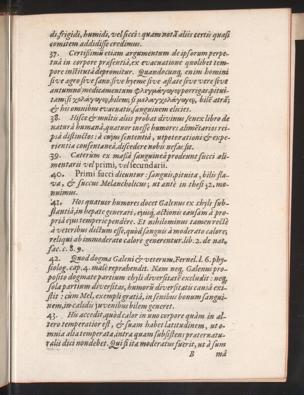 di, frigidi, humidi, vel sicci: quam notã aliis certò quasi
comitem addidisse credimus.
37. Certissimũ etiam argumentum de ipsorum perpe-
tuâ in corpore præsentiâ, ex evacuatione quolibet tem-
pore institutâ depromitur. Quandocunq́; enim homini
sive ægro sive sano, sive hyeme sive æstate sive vere sive
autumno medicamentum φλεγμαγωγον porrigas, pitui-
tam; si χολαγωγον, bilem; si μελαγχολαγωγον, bilẽ atrã;
& his omnibus evacuatis, sanguinem elicies.
38. Hisce & multis aliis probat divinus senex libro de
naturâ humanâ, quatuor inesse humores alimẽtarios rei-
psâ distinctos: à cujus sententiâ, utpote rationi & expe-
rientia consentaneâ, discedere nobis nefas sit.
39. Cæterùm ex massâ sanguineâ prodeunt succi ali-
mentarii vel primi, vel secundarii.
40. Primi succi dicuntur: sanguis, pituita, bilis fla-
va, & succus Melancholicus; ut antè in thesi 32. mo-
nuimus.
41. Hos quatuor humores docet Galenus ex chyli sub-
stantiâ, in hepate generari, ejusq́; actionis causam à pro-
priâ ejus temperie pendêre. Et nihilominus tamen rectè
à veteribus dictum esse, quòd sanguis à moderato calore,
reliqui ab immoderato calore generentur. lib. 2. de nat.
fac. c. 8. 9.
42. Quod dogma Galeni & veterum, Fernel. l. 6. phy-
siolog. cap. 4. malè reprehendit. Nam neq́; Galenus pro-
posito dogmate partium chyli diversitatẽ excludit: neq́;
sola partium diversitas, humorũ diversitatis causa exi-
stit: cùm Mel, exempli gratiâ, in senibus bonum sangui-
nem, in calidis juvenibus bilem generet.
43. His accedit, quòd calor in uno corpore quàm in al-
tero temperatior est, & suam habet latitudinem, ut o-
mnia alia temperata, intra quam subsistens præternatu-
ralis dici non debet. Qui si ita moderatus fuerit, ut à sum
B mã